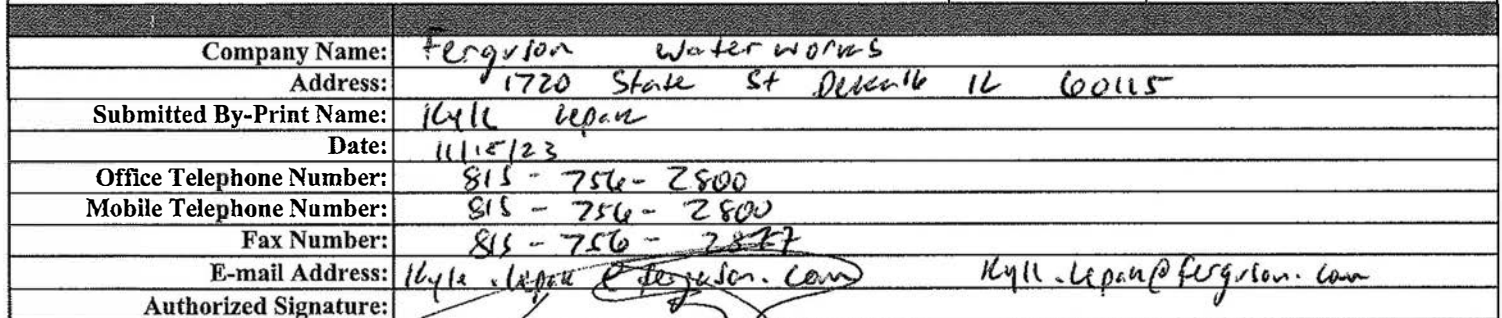 Company Name: Ferguson Waterworks
Address: 1720 State St Dekalb IL 60115
Submitted By-Print Name: Kyle Lepak
Date: 11/15/23
Office Telephone Number: 815 - 756 - 2800
Mobile Telephone Number: 815 - 756 - 2800
Fax Number: 815 - 756 - 2877
E-mail Address: Kyle.Lepak@ferguson.com Kyle.Lepak@ferguson.com
Authorized Signature: